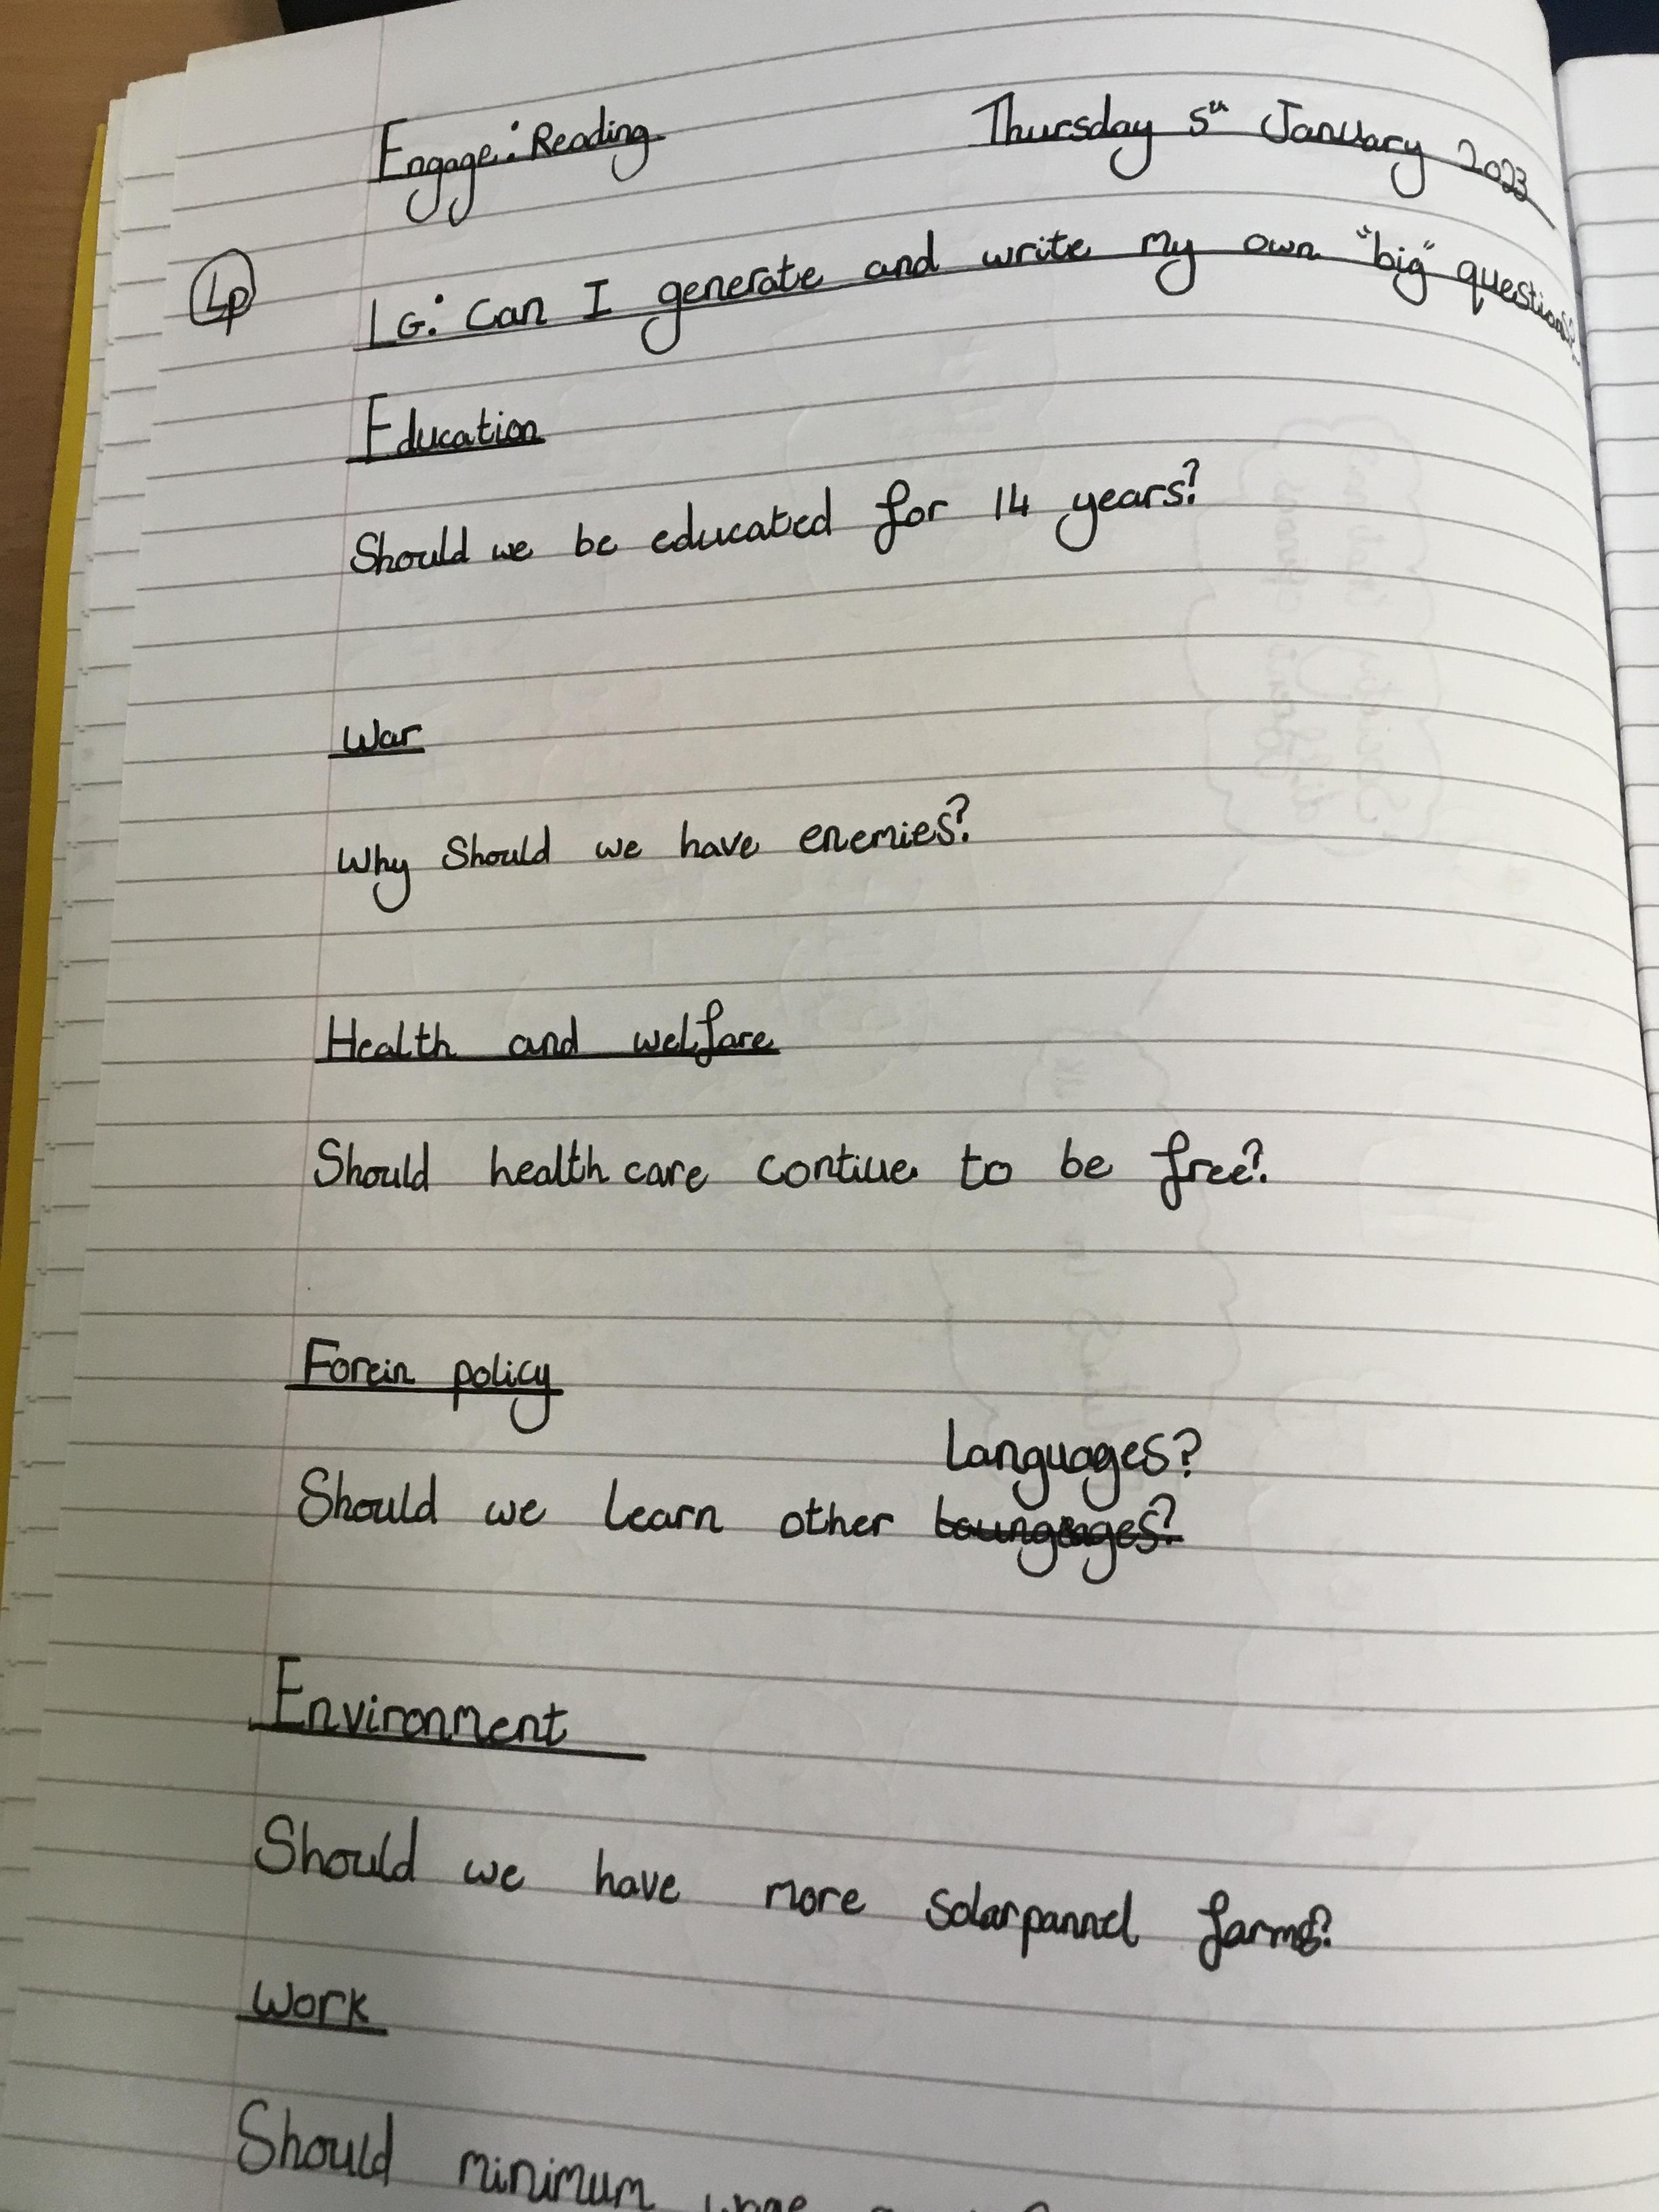 Engage: Reading Thursday 5th January 2023
Lp LG: Can I generate and write my own "big" questions?
Education
Should we be educated for 14 years?
War
Why Should we have enemies?
Health and welfare
Should health care contiue to be free?
Forein policy
Languages?
Should we learn other
Environment
Should we have more Solarpannel farms?
Work
Should minimum wage